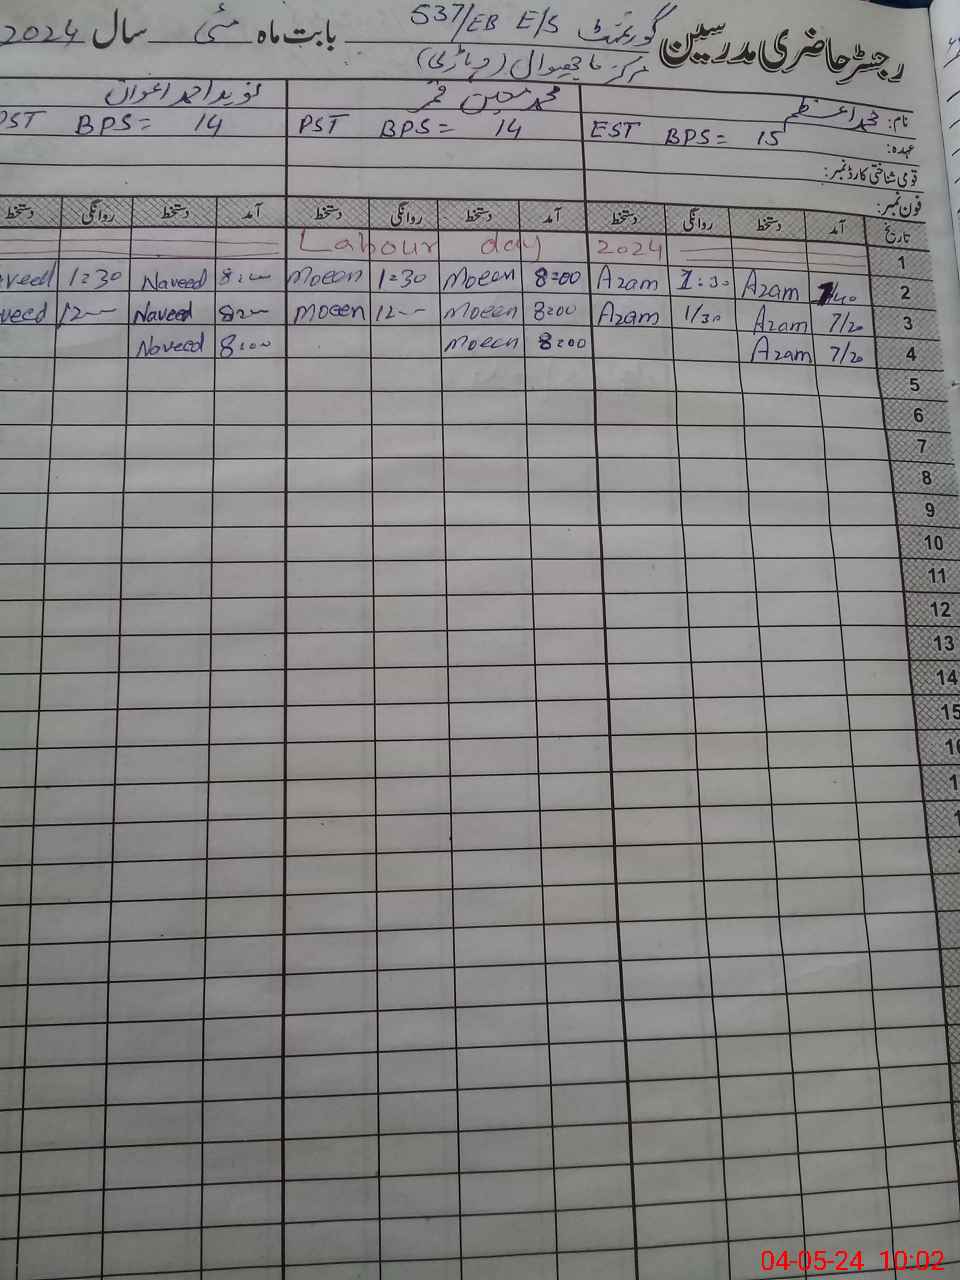 رجسٹر حاضری مدرسین گورنمنٹ 537/EB E/S بابت ماہ مئی سال 2024
مرکز ماچھیوال (وہاڑی)
نام: محمد اعظم محمد معین قمر نوید احمد اعوان
عہدہ: EST BPS = 15 PST BPS = 14 PST BPS = 14
قومی شناختی کارڈ نمبر:
فون نمبر:
تاریخ آمد دستخط روانگی دستخط آمد دستخط روانگی دستخط آمد دستخط روانگی دستخط
1 Labour day 2024
2 7/40 Azam 1:30 Azam 8:00 Moeen 1:30 Moeen 8:00 Naveed 1:30 Naveed
3 7/20 Azam 1/30 Azam 8:00 Moeen 12— Moeen 8:00 Naveed 12— Naveed
4 7/20 Azam 8:00 Moeen 8:00 Naveed
5
6
7
8
9
10
11
12
13
14
15
04-05-24 10:02